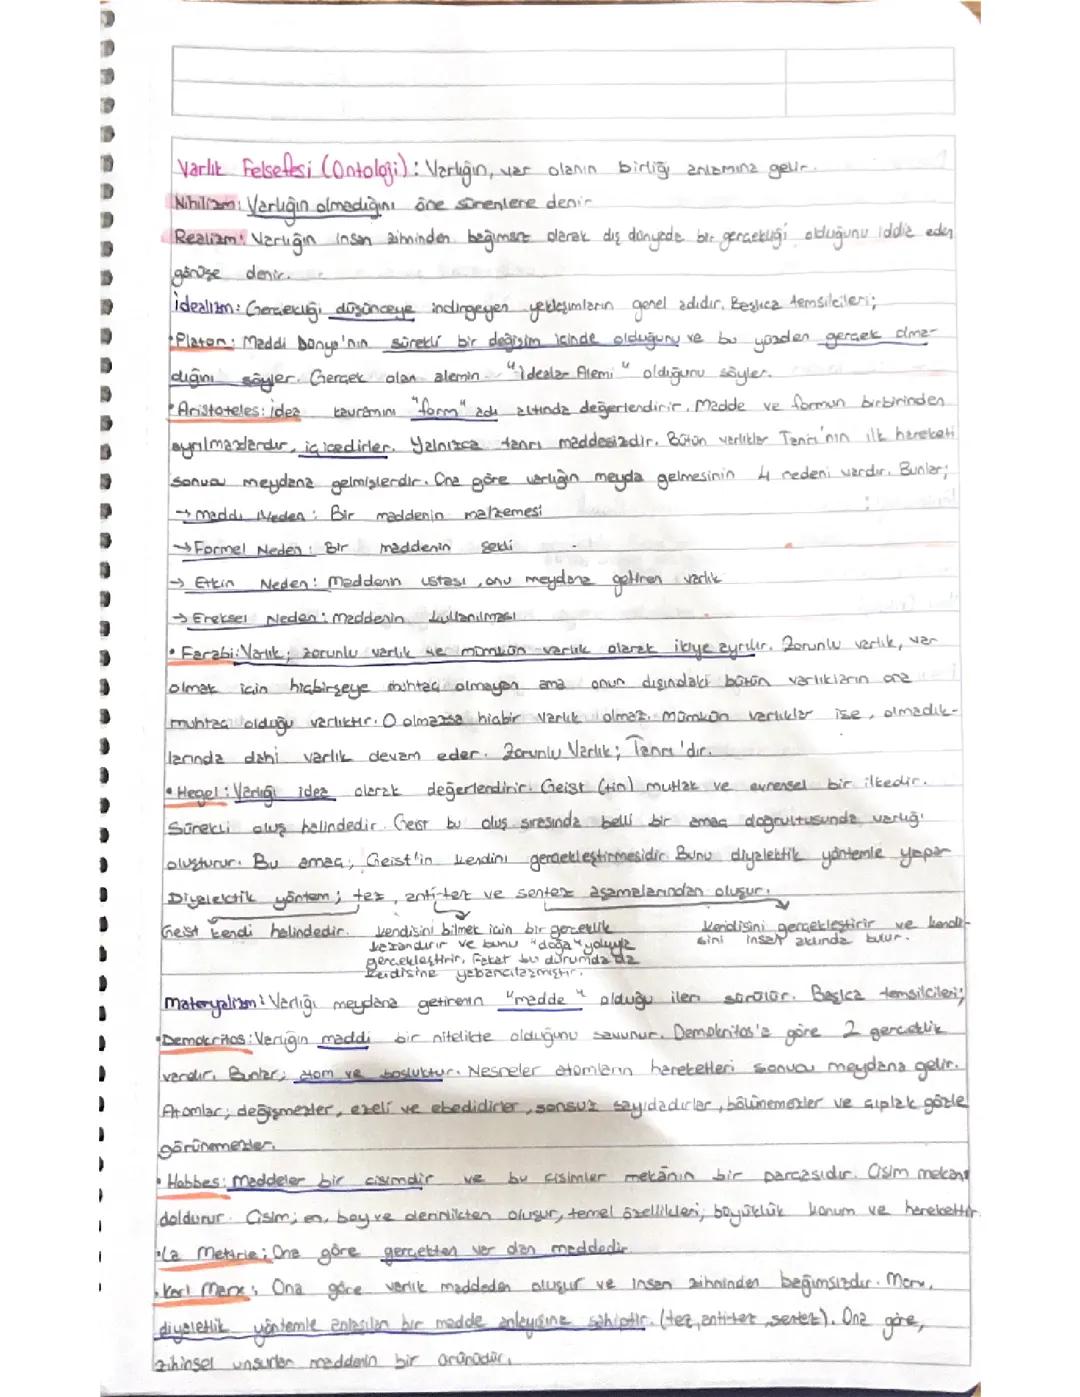 Varlık Felsefesi (Ontoloji): Varlığın, var olanın birliği anlamına gelir.
Nihilizm: Varlığın olmadığını öne sürenlere denir
Realizm: Varlığın insan zihninden bağımsız olarak dış dünyada bir gerçekliği olduğunu iddia eden
görüşe denir.
İdealizm: Gerçekliği düşünceye indirgeyen yaklaşımların genel adıdır. Başlıca temsilcileri;
•Platon: Maddi Dünya'nın sürekli bir değişim içinde olduğunu ve bu yüzden gerçek olma-
dığını söyler. Gerçek olan alemin "idealar Alemi" olduğunu söyler.
•Aristoteles: idea kavramını "form" adı altında değerlendirir. Madde ve formun birbirinden
ayrılmazlardır, iç içedirler. Yalnızca tanrı maddesizdir. Bütün varlıklar Tanrı'nın ilk hareketi
sonucu meydana gelmişlerdir. Ona göre varlığın meyda gelmesinin 4 nedeni vardır. Bunlar;
→ Maddi Neden: Bir maddenin malzemesi
→ Formel Neden: Bir maddenin şekli
→ Etkin Neden: Maddenin ustası, onu meydana getiren varlık
→ Ereksel Neden: Maddenin kullanılması
• Farabi: Varlık; zorunlu varlık ve mümkün varlık olarak ikiye ayrılır. Zorunlu varlık, var
olmak için hiçbirşeye muhtaç olmayan ama onun dışındaki bütün varlıkların ona
muhtaç olduğu varlıktır. O olmazsa hiçbir varlık olmaz. Mümkün varlıklar ise, olmadık-
larında dahi varlık devam eder. Zorunlu Varlık; Tanrı'dır.
• Hegel: Varlığı idea olarak değerlendirir. Geist (tin) mutlak ve evrensel bir ilkedir.
Sürekli oluş halindedir. Geist bu oluş sırasında belli bir amaç doğrultusunda varlığı
oluşturur. Bu amaç; Geist'in kendini gerçekleştirmesidir. Bunu diyalektik yöntemle yapar
Diyalektik yöntem; tez, anti-tez ve sentez aşamalarından oluşur.
Geist kendi halindedir.
kendisini bilmek için bir gerçeklik
kazandırır ve bunu "doğa" yoluyla
gerçekleştirir. Fakat bu durumda da
kendisine yabancılaşmıştır.
Kendisini gerçekleştirir ve kendi-
sini insan aklında bulur.
Materyalizm: Varlığı meydana getirenin "madde" olduğu ileri sürülür. Başlıca temsilcileri;
•Demokritos: Varlığın maddi bir nitelikte olduğunu savunur. Demokritos'a göre 2 gerçeklik
vardır. Bunlar; atom ve boşluktur. Nesneler atomların hareketleri sonucu meydana gelir.
Atomlar; değişmezler, ezeli ve ebedidirler, sonsuz sayıdadırlar, bölünemezler ve çıplak gözle
görünemezler.
• Hobbes: Maddeler bir cisimdir ve bu cisimler mekânın bir parçasıdır. Cisim mekanı
doldurur. Cisim; en, boy ve derinlikten oluşur, temel özellikleri; büyüklük konum ve harekettir.
•La Metirie: Ona göre gerçekten var olan maddedir.
•Karl Marx: Ona göre varlık maddeden oluşur ve insan zihninden bağımsızdır. Marx,
diyalektik yöntemle anlaşılan bir madde anlayışına sahiptir. (tez, anti-tez, sentez). Ona göre,
zihinsel unsurlar maddenin bir ürünüdür.